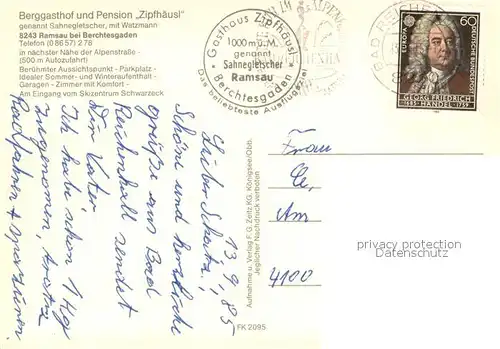 Berggasthof und Pension „Zipfhäusl"
genannt Sahnegletscher, mit Watzmann
8243 Ramsau bei Berchtesgaden
Telefon (0 86 57) 2 78
in nächster Nähe der Alpenstraße -
(500 m Autozufahrt)
Berühmter Aussichtspunkt - Parkplatz -
Idealer Sommer- und Winteraufenthalt -
Garagen - Zimmer mit Komfort -
Am Eingang vom Skizentrum Schwarzeck
Gasthaus Zipfhäusl
1000 m ü. M.
genannt
Sahnegletscher
Ramsau
Berchtesgaden
Das beliebteste Ausflugsziel
BAD REICHEN
EUROPA
60
DEUTSCHE BUNDESPOST
GEORG FRIEDRICH
1685 HÄNDEL 1759
13.9.85
Lieber Schatz!
Schöne und herzliche
Grüße aus Bad
Reichenhall sendet
Dein Vater
Ich habe schon 1 Kg
zugenommen, trotz
Radfahren + spazieren.
Aufnahme u. Verlag F. G. Zeitz KG, Königsee/Obb.
Jeglicher Nachdruck verboten
FK 2095
Frau
Am
4100
wwwansichtskartenversandcom
Datenschutz